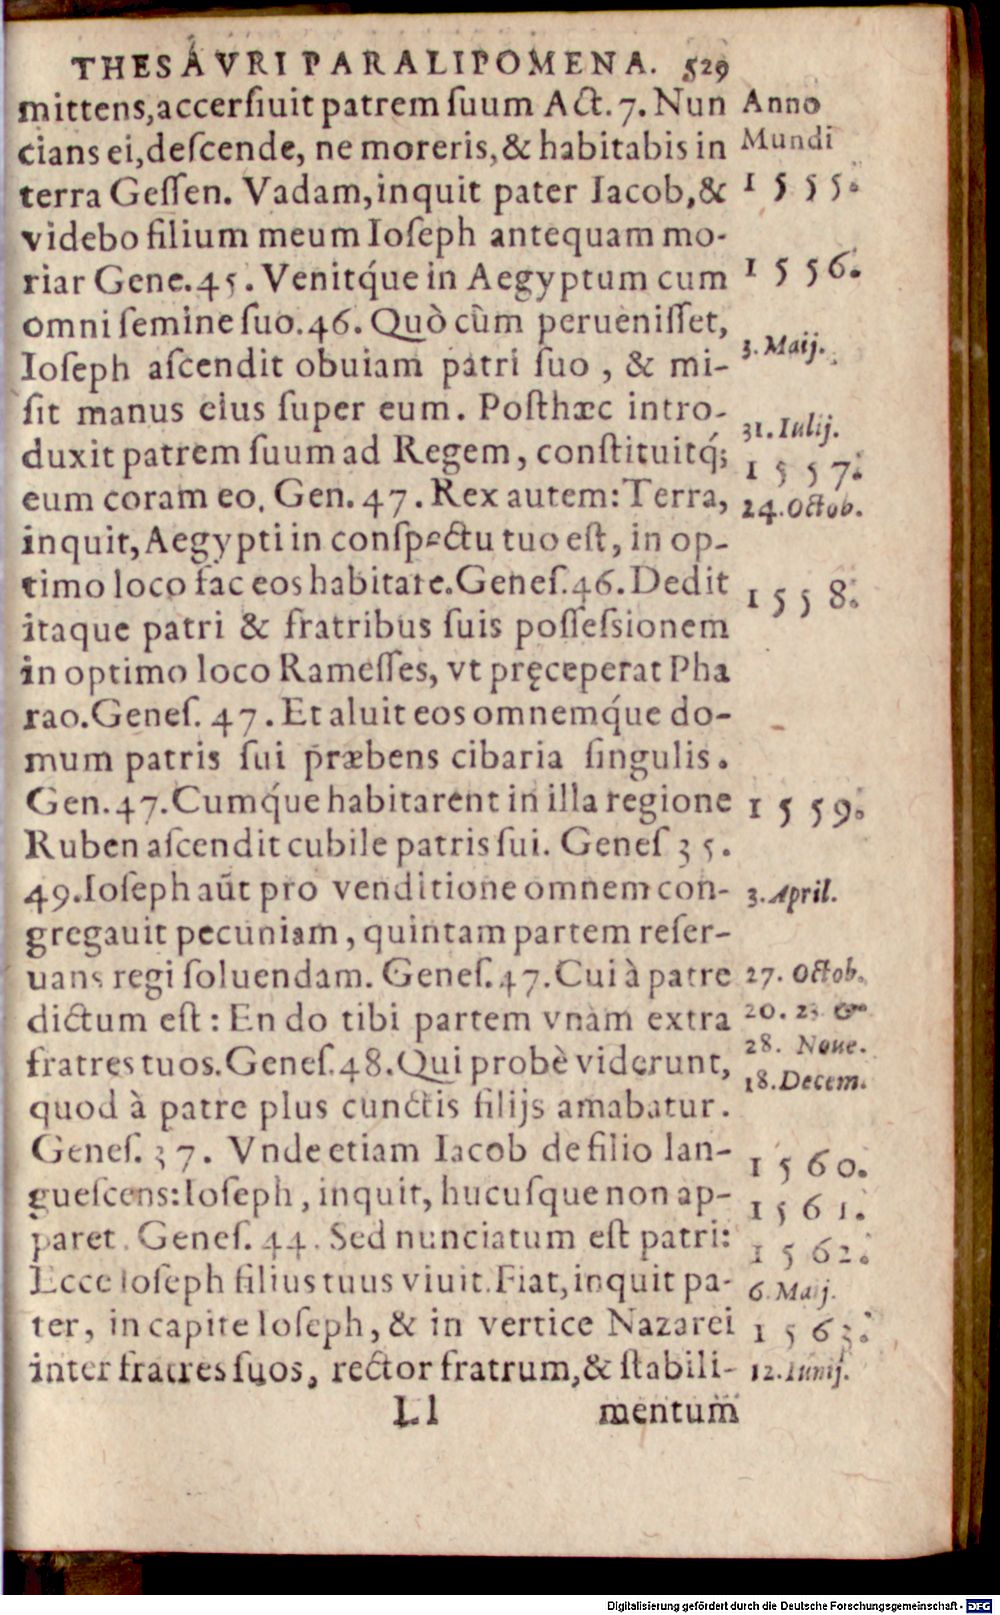 THESAVRI PARALIPOMENA. 529
mittens,accersiuit patrem suum Act.7. Nun
cians ei,descende, ne moreris,& habitabis in
terra Gessen. Vadam,inquit pater Iacob,&
videbo filium meum Ioseph antequam mo-
riar Gene.45. Venitq́ue in Aegyptum cum
omni semine suo.46. Quò cùm peruenisset,
Ioseph ascendit obuiam patri suo, & mi-
sit manus eius super eum. Posthæc intro-
duxit patrem suum ad Regem, constituitq́;
eum coram eo. Gen. 47. Rex autem: Terra,
inquit, Aegypti in conspectu tuo est, in op-
timo loco fac eos habitare. Genes.46. Dedit
itaque patri & fratribus suis possessionem
in optimo loco Ramesses, vt pręceperat Pha
rao. Genes. 47. Et aluit eos omnemq́ue do-
mum patris sui præbens cibaria singulis.
Gen.47. Cumq́ue habitarent in illa regione
Ruben ascendit cubile patris sui. Genes 35.
49. Ioseph aũt pro venditione omnem con-
gregauit pecuniam, quintam partem reser-
uans regi soluendam. Genes.47. Cui à patre
dictum est: En do tibi partem vnam extra
fratres tuos. Genes.48. Qui probè viderunt,
quod à patre plus cunctis filijs amabatur.
Genes.37. Vnde etiam Iacob de filio lan-
guescens: Ioseph, inquit, hucusque non ap-
paret. Genes. 44. Sed nunciatum est patri:
Ecce Ioseph filius tuus viuit. Fiat, inquit pa-
ter, in capite Ioseph, & in vertice Nazarei
inter fratres suos, rector fratrum, & stabili-
Ll mentum
Anno
Mundi
1555.
1556.
3. Maij.
31. Iulij.
1557.
24. Octob.
1558.
1559.
3. April.
27. Octob.
20. 23 &
28. Noue.
18. Decem.
1560.
1561.
1562.
6. Maij.
1563.
12. Iunij.
Digitalisierung gefördert durch die Deutsche Forschungsgemeinschaft - DFG